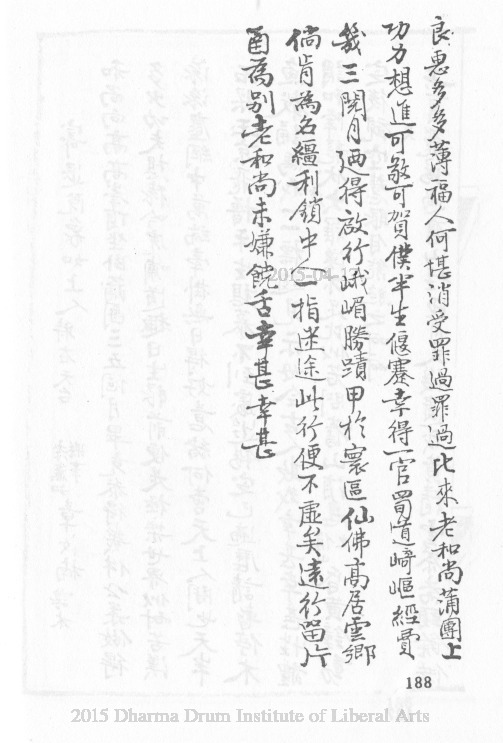 良惠多多薄福人何堪消受罪過罪過比來老和尚蒲團上
功力想進可敬可賀僕半生偃蹇幸得一官蜀道崎嶇經費
幾三閱月迺得啟行峨嵋勝蹟甲於寰區仙佛高居雲鄉
倘肯為名繮利鎖中人一指迷途此行便不虛矣遠行留片
函為別老和尚未嫌饒舌幸甚幸甚
2015-04-17
188
2015 Dharma Drum Institute of Liberal Arts